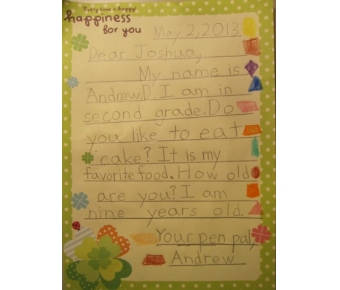 Every time is happy
happiness
for you
May 2, 2013
Dear Joshua,
My name is
Andrew.D. I am in
second grade. Do
you like to eat
cake? It is my
favorite food. How old
are you? I am
nine years old.
Your pen pal,
Andrew